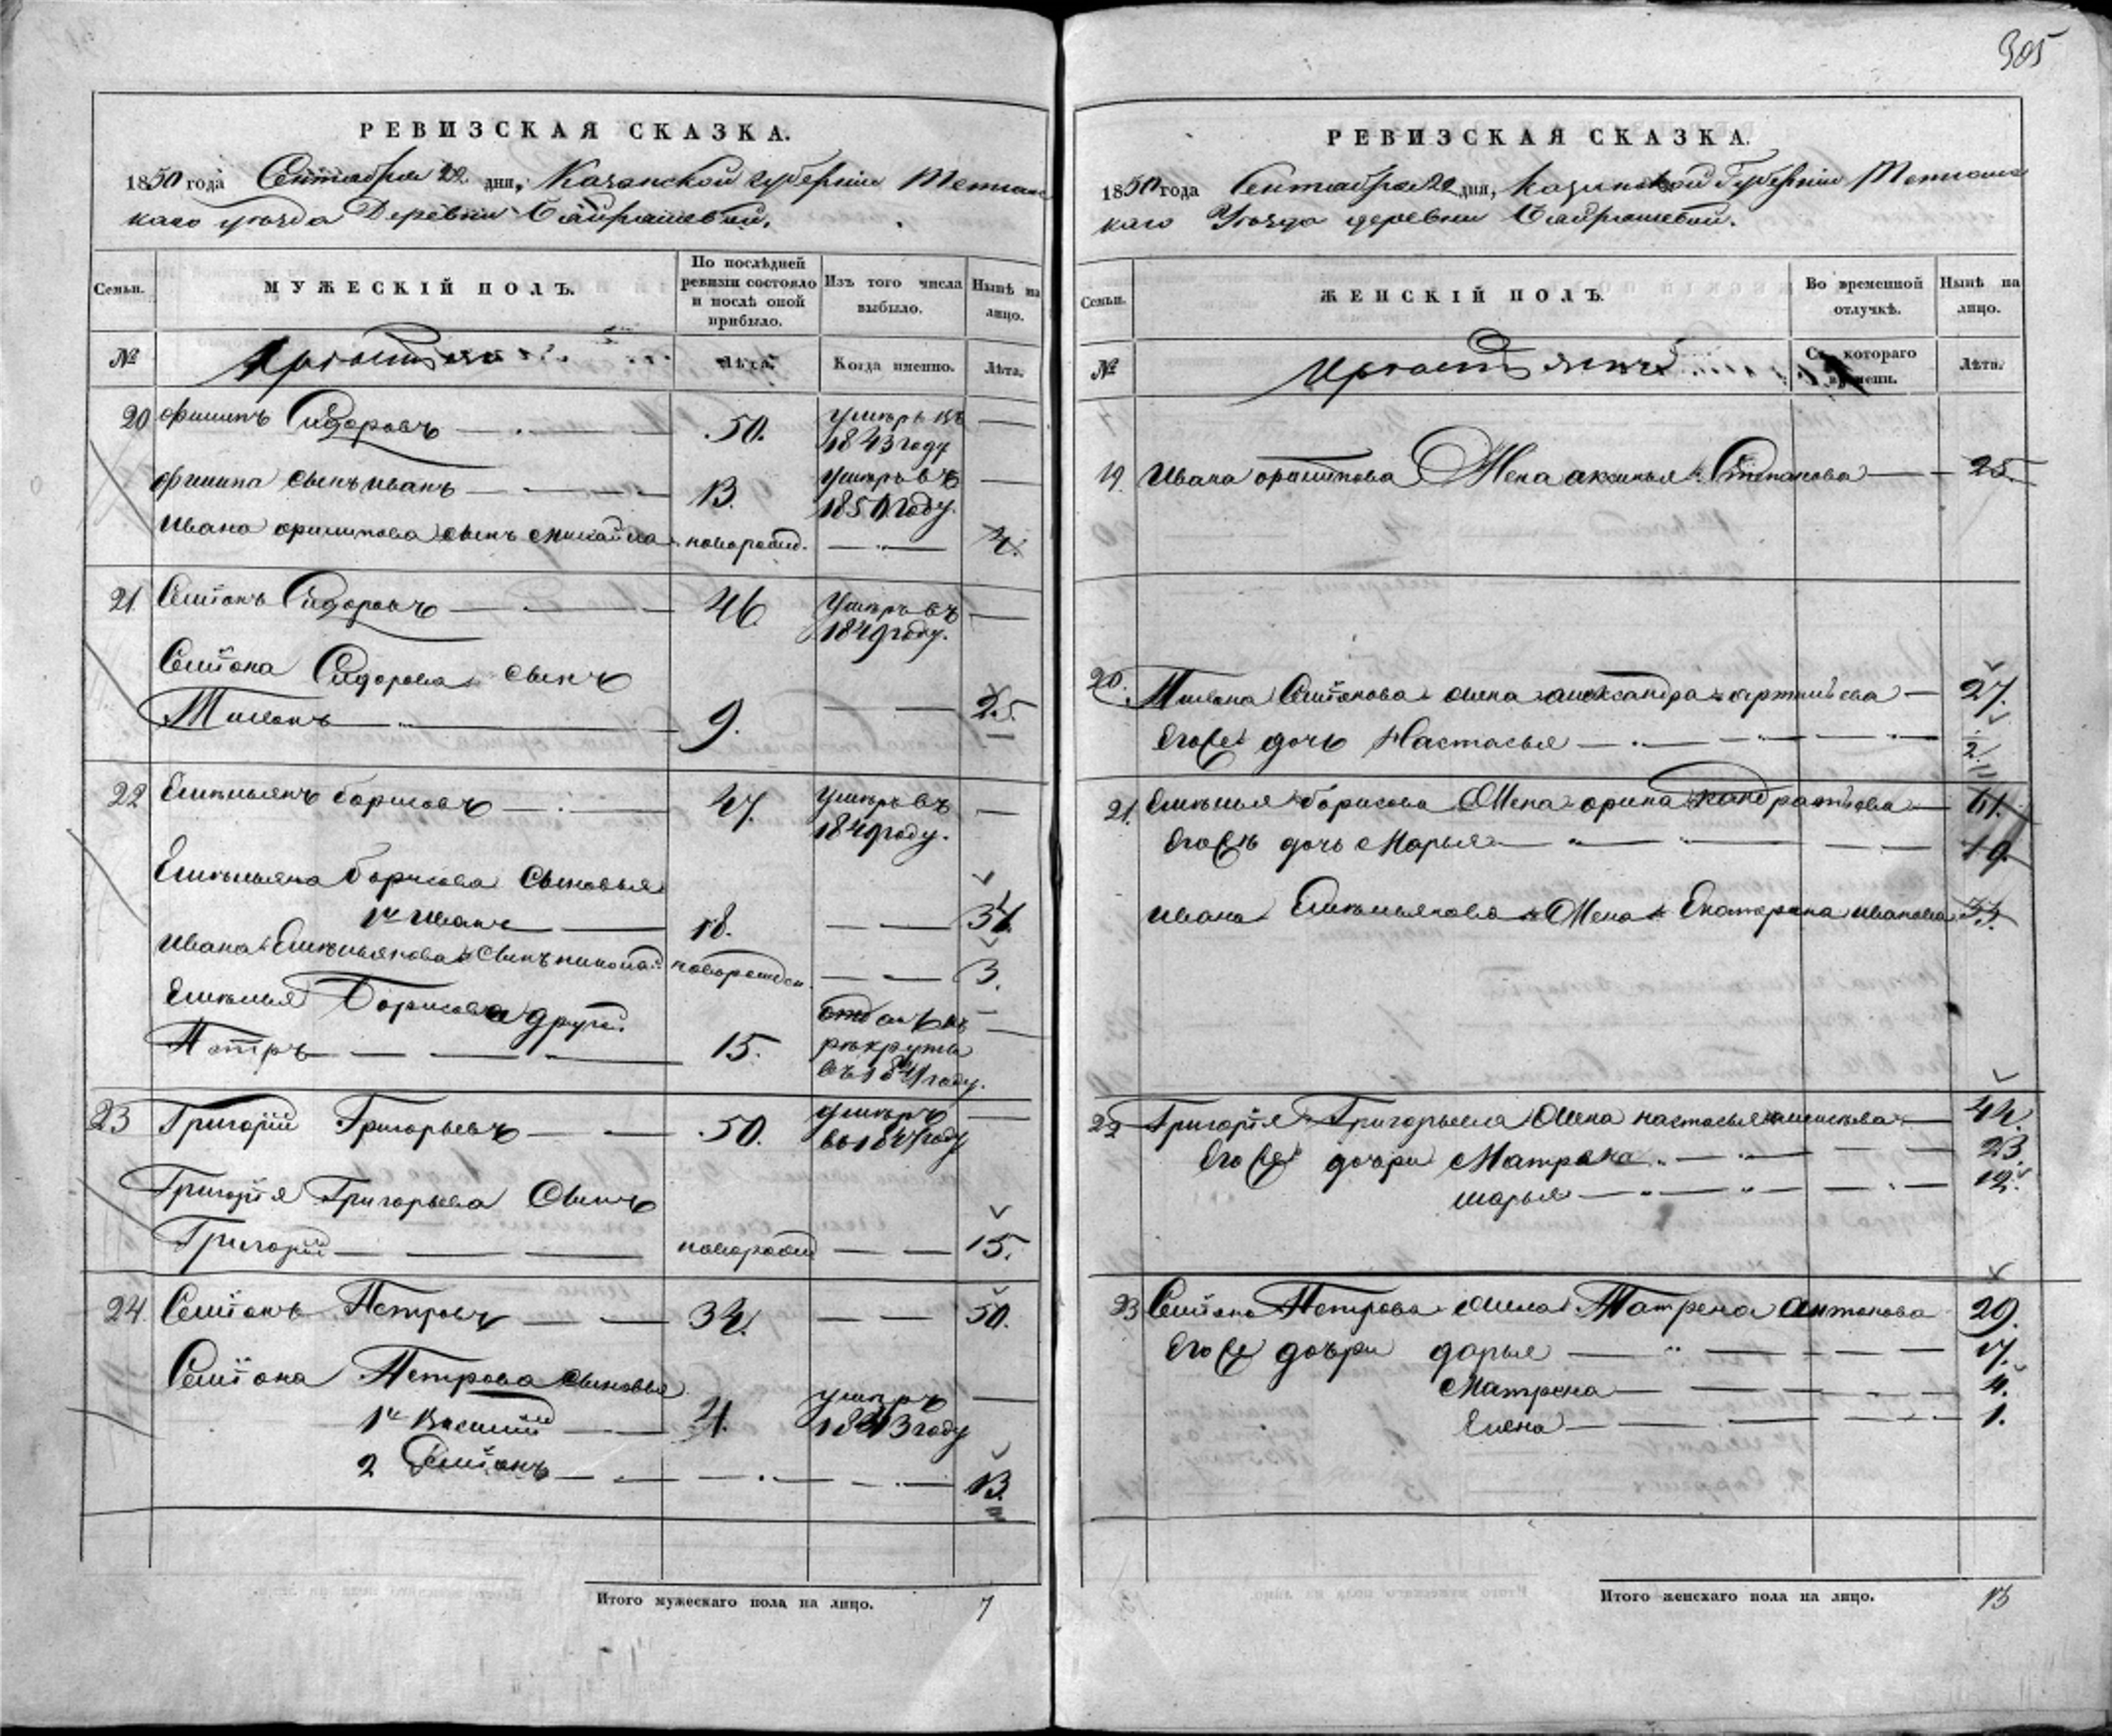 305
РЕВИЗСКАЯ СКАЗКА.
1850 года Сентября 22 дня, Казанской губернии Тетюш
каго уѣзда Деревни Байрашевой.
Семьи. МУЖЕСКІЙ ПОЛЪ. По послѣдней ревизіи состояло и послѣ оной прибыло. Изъ того числа выбыло. Нынѣ на лицо.
№ Крестьяне Лѣта. Когда именно. Лѣта.
20 Филипъ Сидоровъ 50. умеръ въ 1843 году
Филипа сынъ Иванъ 13. умеръ въ 1850 году.
Ивана Филипова сынъ Михайла новорожд.
21. Семіонъ Сидоровъ 46. Умеръ въ 1849 году.
Семіона Сидорова сынъ
9. 25.
22 Емельянъ Борисовъ 47. Умеръ въ 1849 году.
Емельяна Борисова сыновья
1й Иванъ 18. 34.
Ивана Емельянова сынъ Никола новорожден. 3.
Емельяна Борисова другой
Петръ 15. отданъ въ рекруты въ 1841 году.
23 Григорій Григорьевъ 50. умеръ въ 1847 году
Григорія Григорьева сынъ
Григорій новорожд 15.
24. Семіонъ Петровъ 34. 50.
Семіона Петрова сыновья
1й Василій 4. умеръ 1843 году
2 Семіонъ 13.
Итого мужескаго пола на лицо. 7
РЕВИЗСКАЯ СКАЗКА.
1850 года Сентября 22 дня, Казанской Губерніи Тетюш
каго Уѣзда деревни Байрашевой.
Семьи. ЖЕНСКІЙ ПОЛЪ. Во временной отлучкѣ. Нынѣ на лицо.
№ Крестьяне Съ котораго времени. Лѣта.
19. Ивана Филипова Жена Аксинья Степанова 25.
20. Семіонова жена Александра 27.
Его дочь Настасья 2.
21. Емельяна Борисова Жена Орина Кандратьева 61.
дочь Марья 19.
Ивана Емельянова Жена Екатерина Иванова 33.
22 Григорія Григорьева Жена Настасья 44.
Его дочери Матрена 23.
Марья 12.
23 Семіона Петрова жена Матрена Антонова 29.
Его дочери Дарья 17.
Матрена
Елена 1.
Итого женскаго пола на лицо. 13